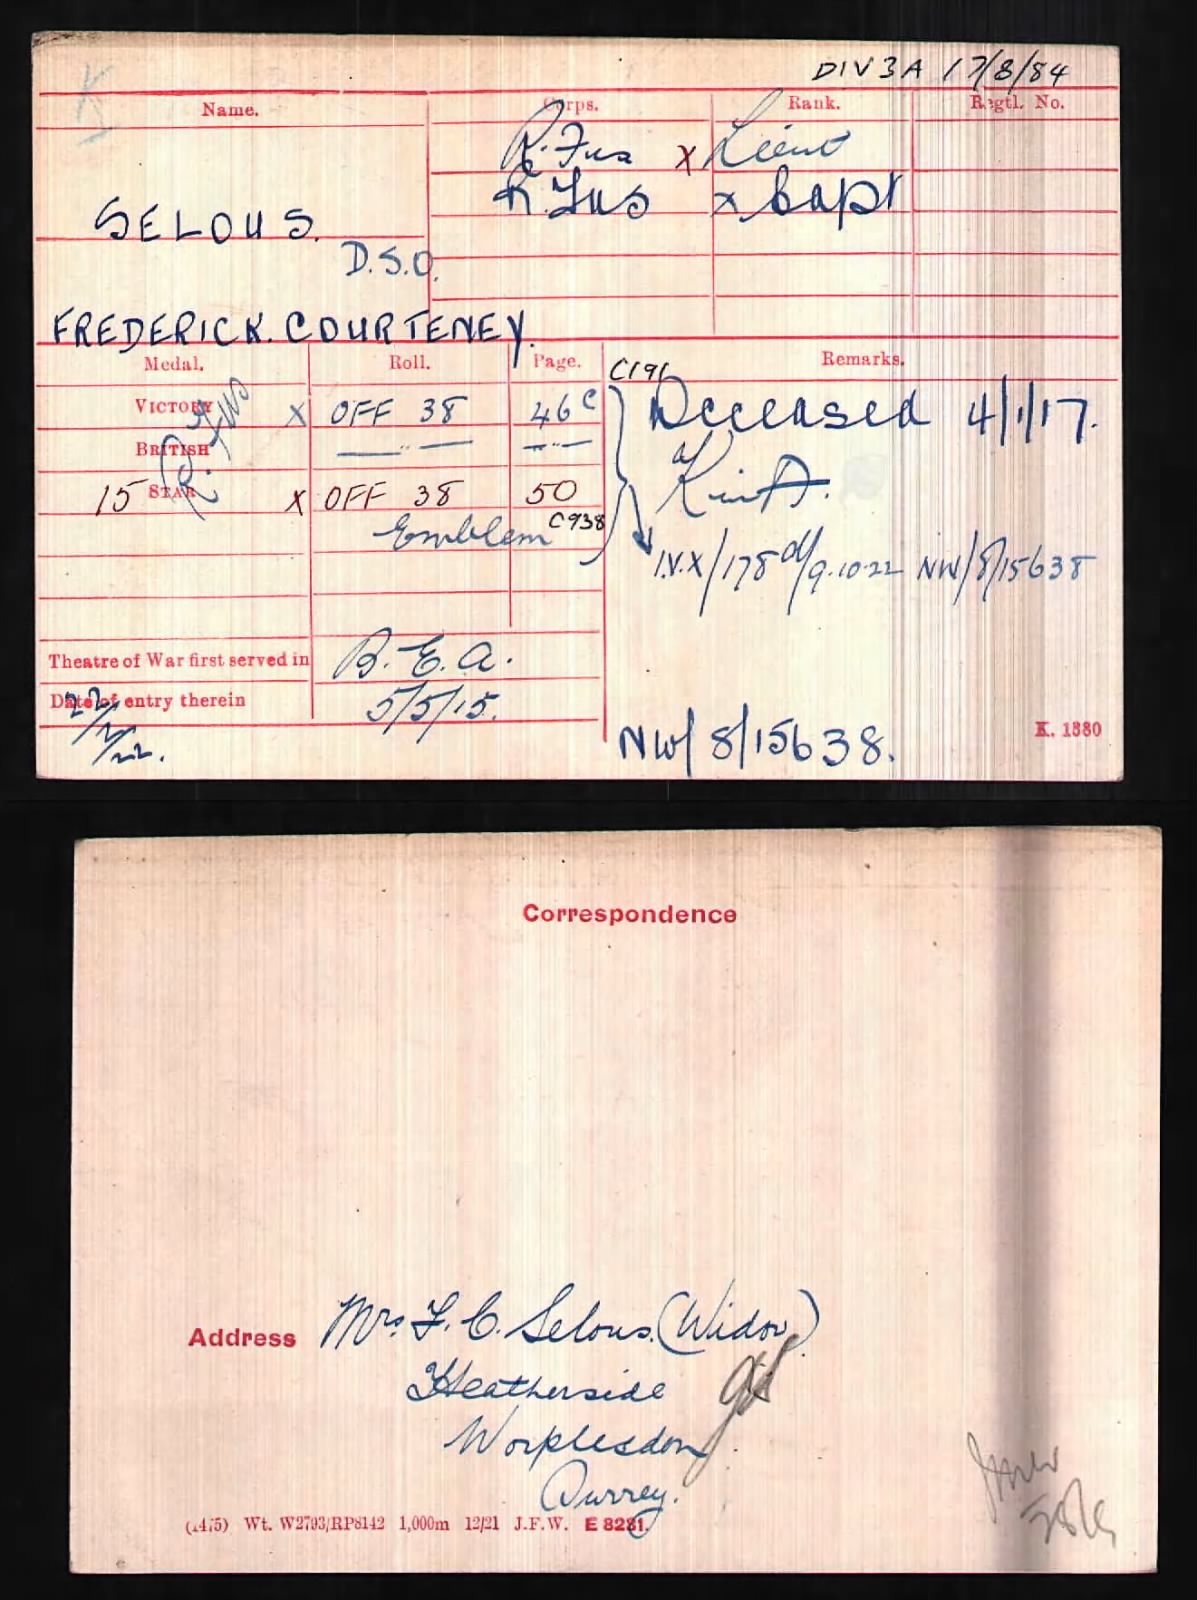 DIV 3A 17/8/84
Name. Corps. Rank. Regtl. No.
R. Fus x Lieut
R. Fus x Capt
SELOUS.
D.S.O.
FREDERICK. COURTENEY.
Medal. Roll. Page. Remarks.
C191
VICTORY X OFF 38 46 C Deceased 4/1/17.
R. Fus
BRITISH
K in A.
15 STAR X OFF 38 50
Emblem C938
I.V.X/178 d/9.10.22 NW/8/15638
Theatre of War first served in B.E.A.
Date of entry therein 5/5/15.
22/2/22.
NW/8/15638.
K. 1380
Correspondence
Address Mrs. F. C. Selous. (Widow)
Heatherside
Worplesdon
Surrey.
Wt. W2793/RP8142 1,000m 12/21 J.F.W. E 8231.